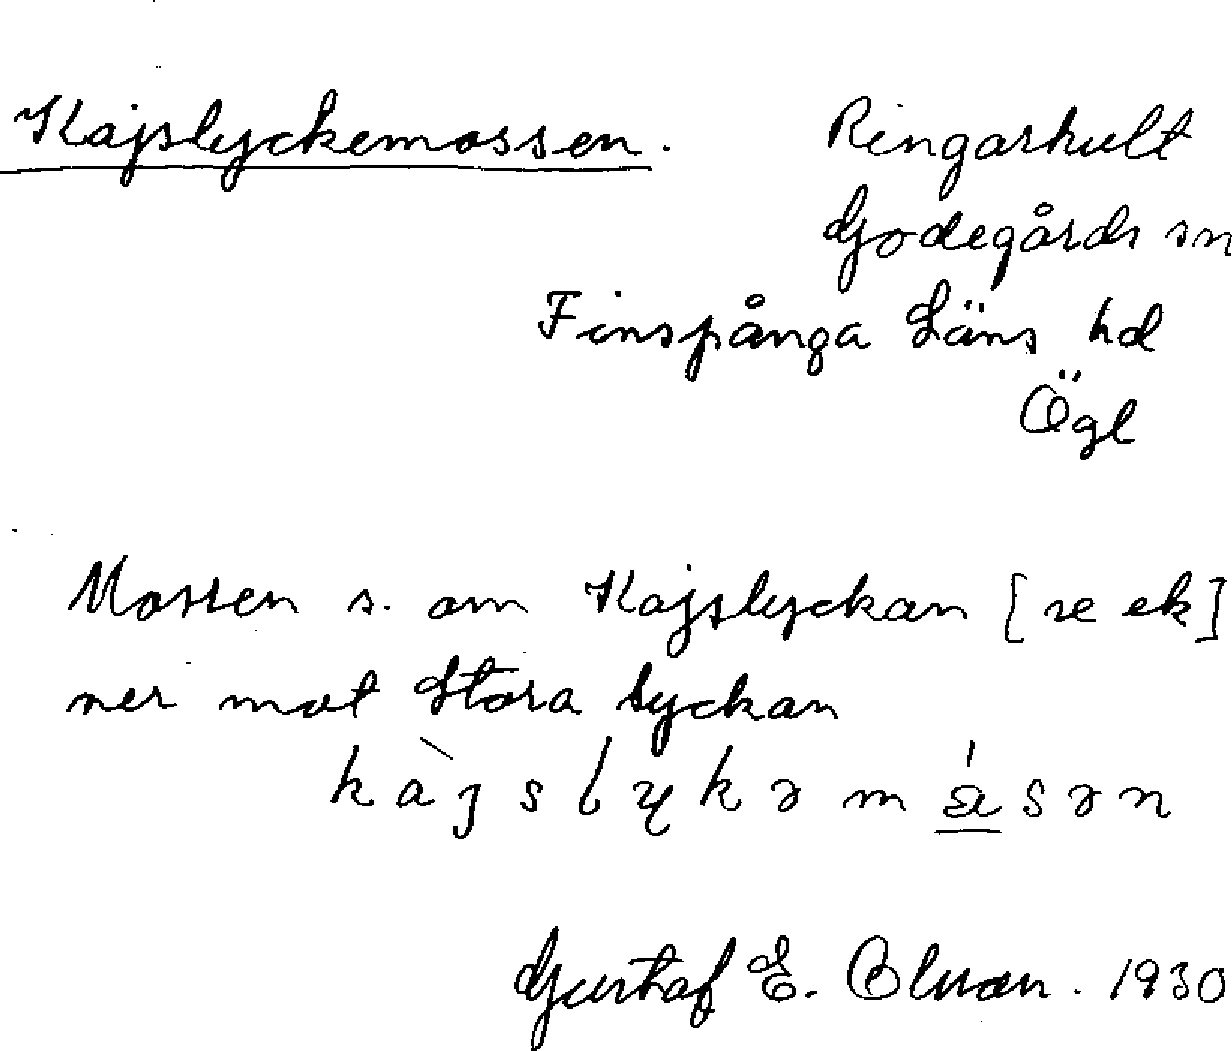 Kajslyckemossen. Ringarhult
Godegårds sn
Finspånga Läns hd
Ögl
Mossen s. om Kajslyckan [se ek]
ner mot Stora Lyckan
Gustaf E. 1930